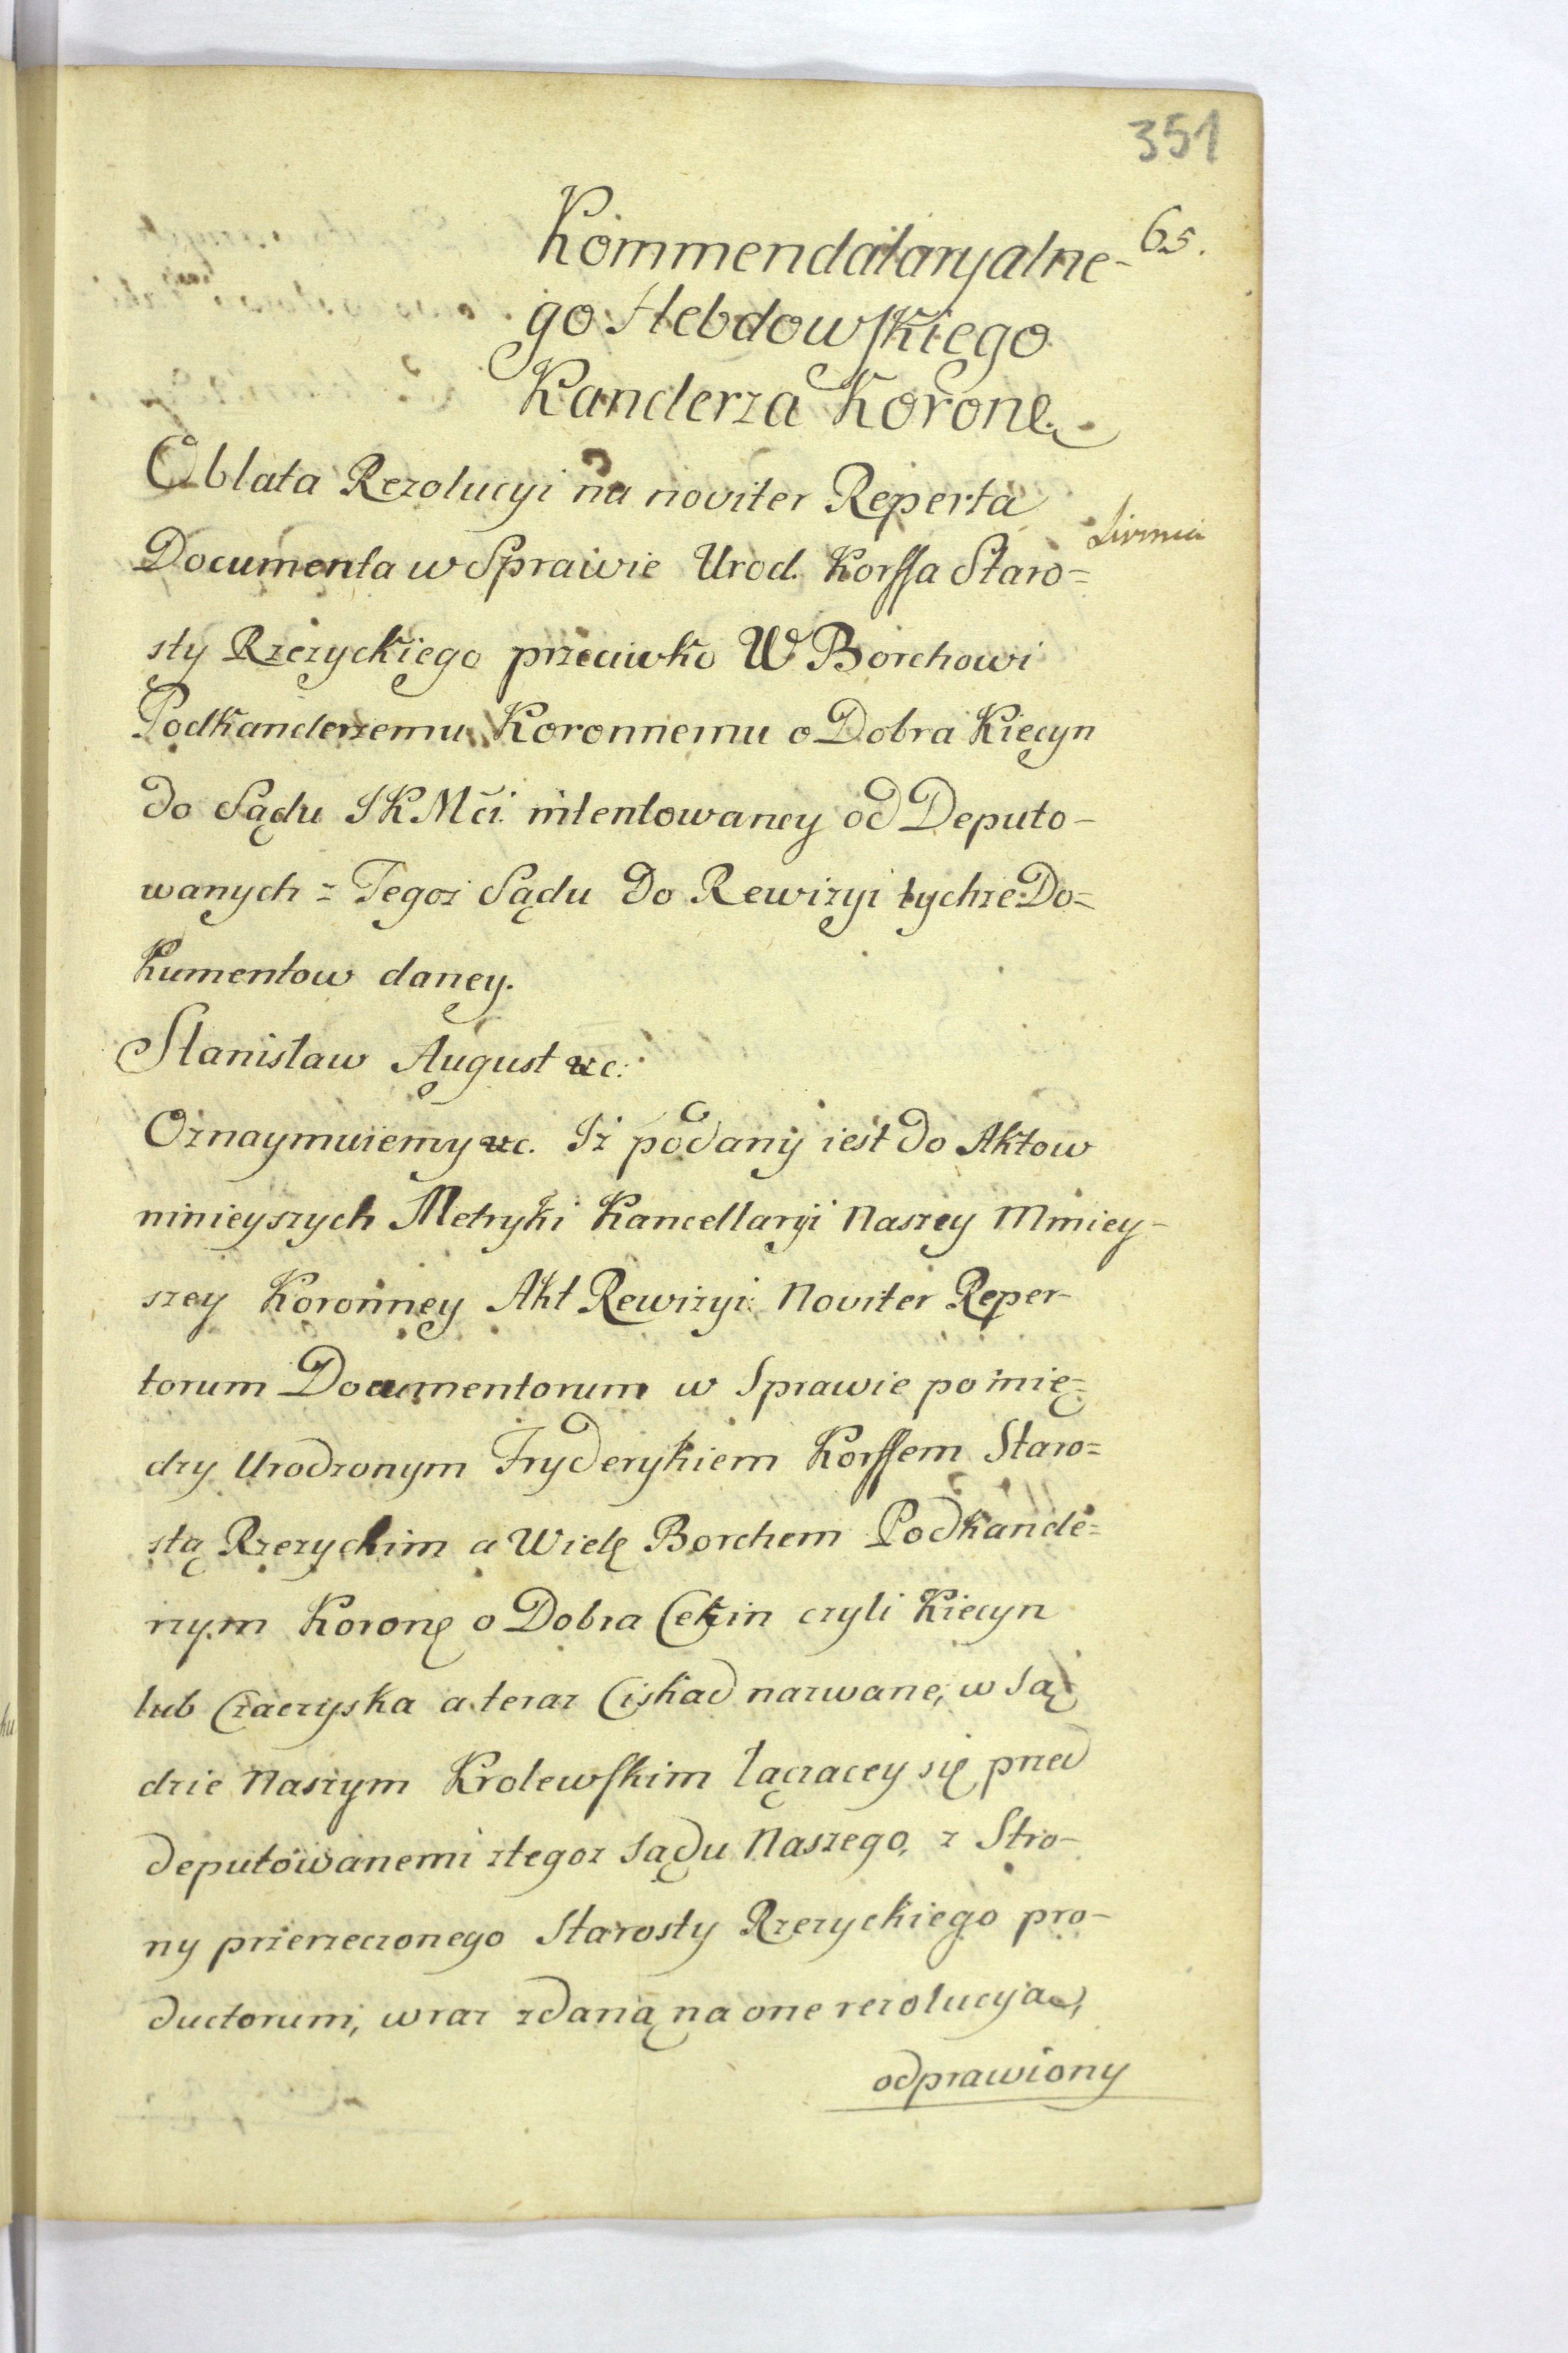 351
65.
Kommendataryalne-
go Hebdowskiego
Kanclerza Koronĕ
Oblata Rezolucyi na noviter Reperta
Documenta w Sprawie Urod. Korffa Staro=
sty Rzezyckiego przeciwko W Borchowi
Podkanclerzemu Koronnemu o Dobra Kiecyn
do Sądu JKMći intentowaney od Deputo-
wanych = Tegoż Sądu do Rewizyi tychże Do=
kumentow daney.
Stanisław August &c:
Oznaymuiemy &c. Iż podany iest do Aktow
ninieyszych Metryki Kancellaryi Naszey Mniey-
szey Koronney Akt Rewizyi Noviter Reper-
torum Documentorum w Sprawie pomię=
dzy Urodzonym Fryderykiem Korffem Staro=
stą Rzezyckim a Wielę Borchem Podkancle=
rzym Koronę o Dobra Cekin czyli Kiecyn
lub Czaczyska a teraz Ciskad nazwane, w Są
dzie Naszym Krolewskim łączącey się przed
deputowanemi z tegoz Sądu Naszego, z Stro-
ny przerzeczonego Starosty Rzezyckiego pro-
ductorum, wraz z daną na one rezolucyą,
odprawiony